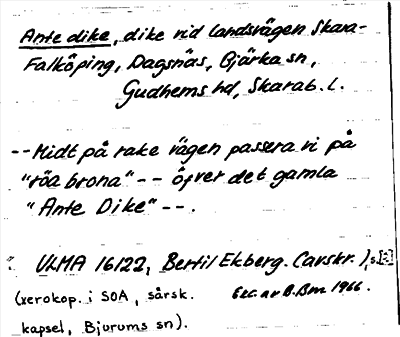 Ante dike, dike vid landsvägen Skara-
Falköping, Dagsnäs, Bjärka sn,
Gudhems hd, Skarab. l.
-- Midt på rake vägen passera vi på
"röa brona" -- öfver det gamla
"Ante Dike" --.
ULMA 16122, Bertil Ekberg. (avskr.), s.
(xerokop. i SOA, särsk.
kapsel, Bjurums sn).
Exc. av B. Bm 1966.